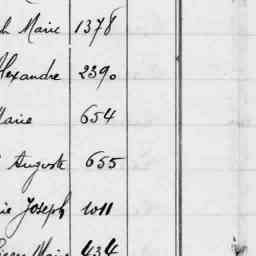 Marie 1378
Alexandre 2390
Marie 654
Auguste 655
Joseph 1011
Marie 434